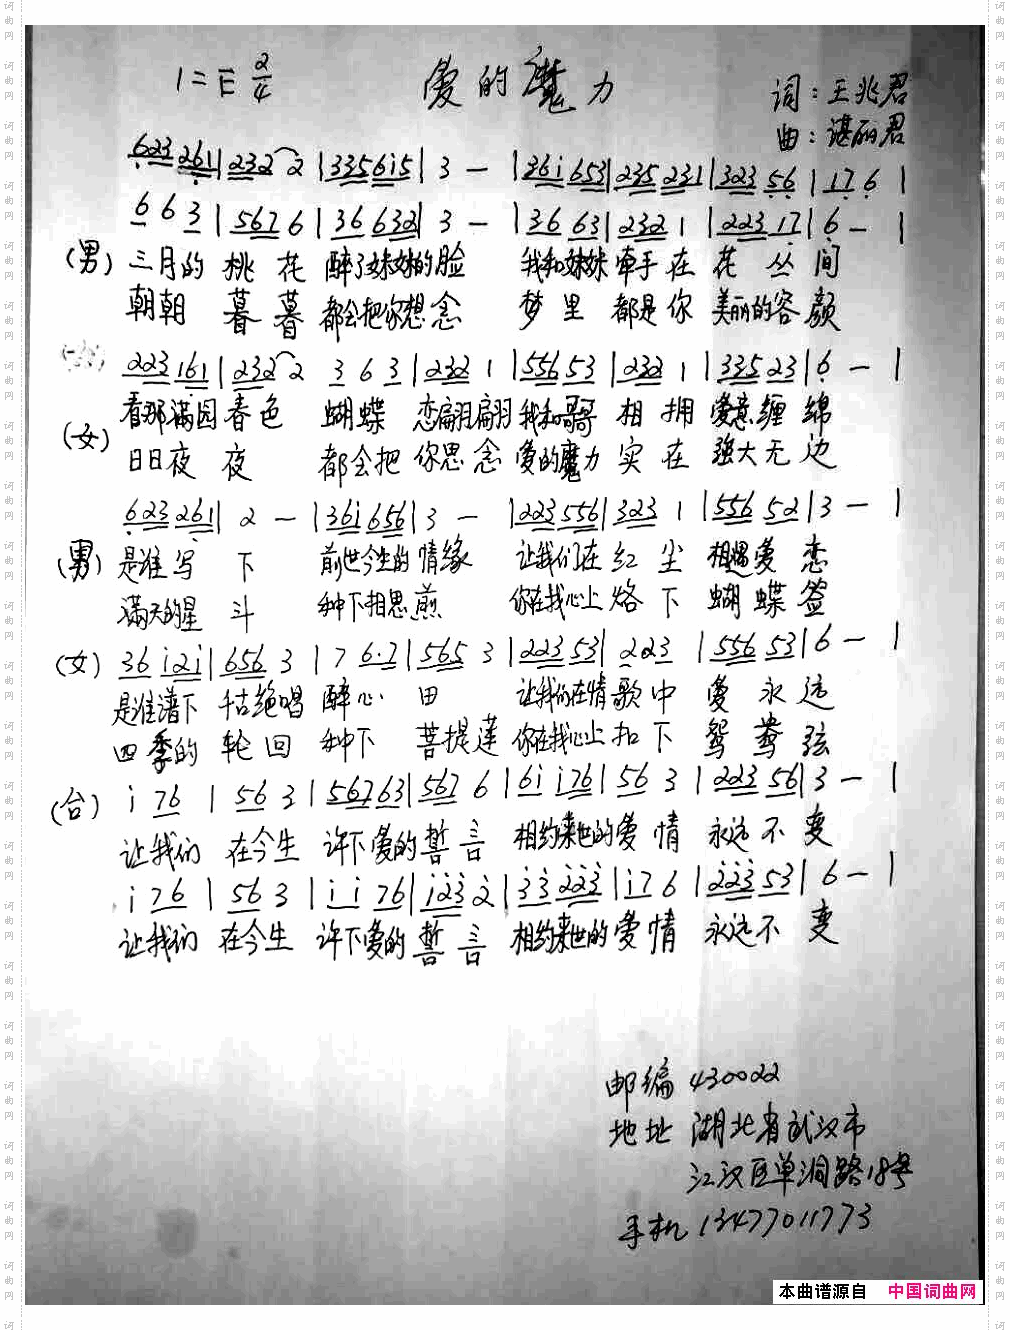 1=E 2/4 爱的魔力
词：王兆君
曲：谌丽君
623 261 | 232 2 | 335 6i5 | 3 - | 36i 653 | 235 231 | 323 56 | 17 6 |
6 6 3 | 567 6 | 36 632 | 3 - | 36 63 | 232 1 | 223 17 | 6 - |
(男) 三月的 桃 花 醉了妹妹的脸 我和妹妹 牵手 在 花 丛 间
朝朝 暮 暮 都会把你想念 梦 里 都是 你 美丽的容 颜
223 161 | 232 2 3 6 3 | 232 1 | 556 53 | 232 1 | 335 23 | 6 - |
看那满园 春 色 蝴蝶 恋翩翩 我和哥哥 相 拥 爱意 缠 绵
(女) 日日夜 夜 都会把 你思 念 爱的魔力 实 在 强大无 边
623 261 | 2 - | 36i 656 | 3 - | 223 556 | 323 1 | 556 52 | 3 - |
(男) 是谁写 下 前世今生的 情缘 让我们在 红 尘 相遇爱 恋
满天的星 斗 种下相思 煎 你在我心上 烙 下 蝴 蝶 签
(女) 36 i2i | 656 3 | 7 6·7 | 565 3 | 223 53 | 223 | 556 53 | 6 - |
是谁谱下 千古绝唱 醉心 田 让我们在情 歌 中 爱 永 远
四 季的 轮 回 种下 菩提莲 你在我心上 扣 下 鸳 鸯 弦
(合) i 76 | 56 3 | 56763 | 567 6 | 6i i76 | 56 3 | 223 56 | 3 - |
让我们 在今生 许下爱的 誓 言 相约来世的爱 情 永远 不 变
i 76 | 56 3 | i i 76 | i23 2 | 33 223 | i7 6 | 223 53 | 6 - |
让我们 在今生 许下爱的 誓 言 相约来世的 爱 情 永远不 变
邮编 430022
地址 湖北省武汉市
江汉区单洞路18号
手机 13477011773
本曲谱源自 中国词曲网